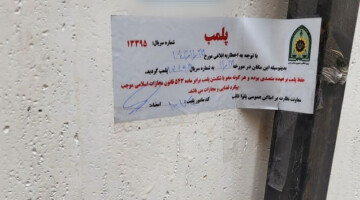 پلمب
شماره سریال: ۱۳۳۹۵
با توجه به اخطاریه ابلاغی مورخ
بدینوسیله این مکان در مورخه به شماره سریال پلمب گردید.
حفظ پلمب بر عهده متصدی بوده و هر گونه محو یا شکستن پلمب برابر ماده ۵۴۳ قانون مجازات اسلامی موجب
پیگرد قضایی و مجازات می باشد.
معاونت نظارت بر اماکن عمومی پاوا
کد مامور پلمب امضاء